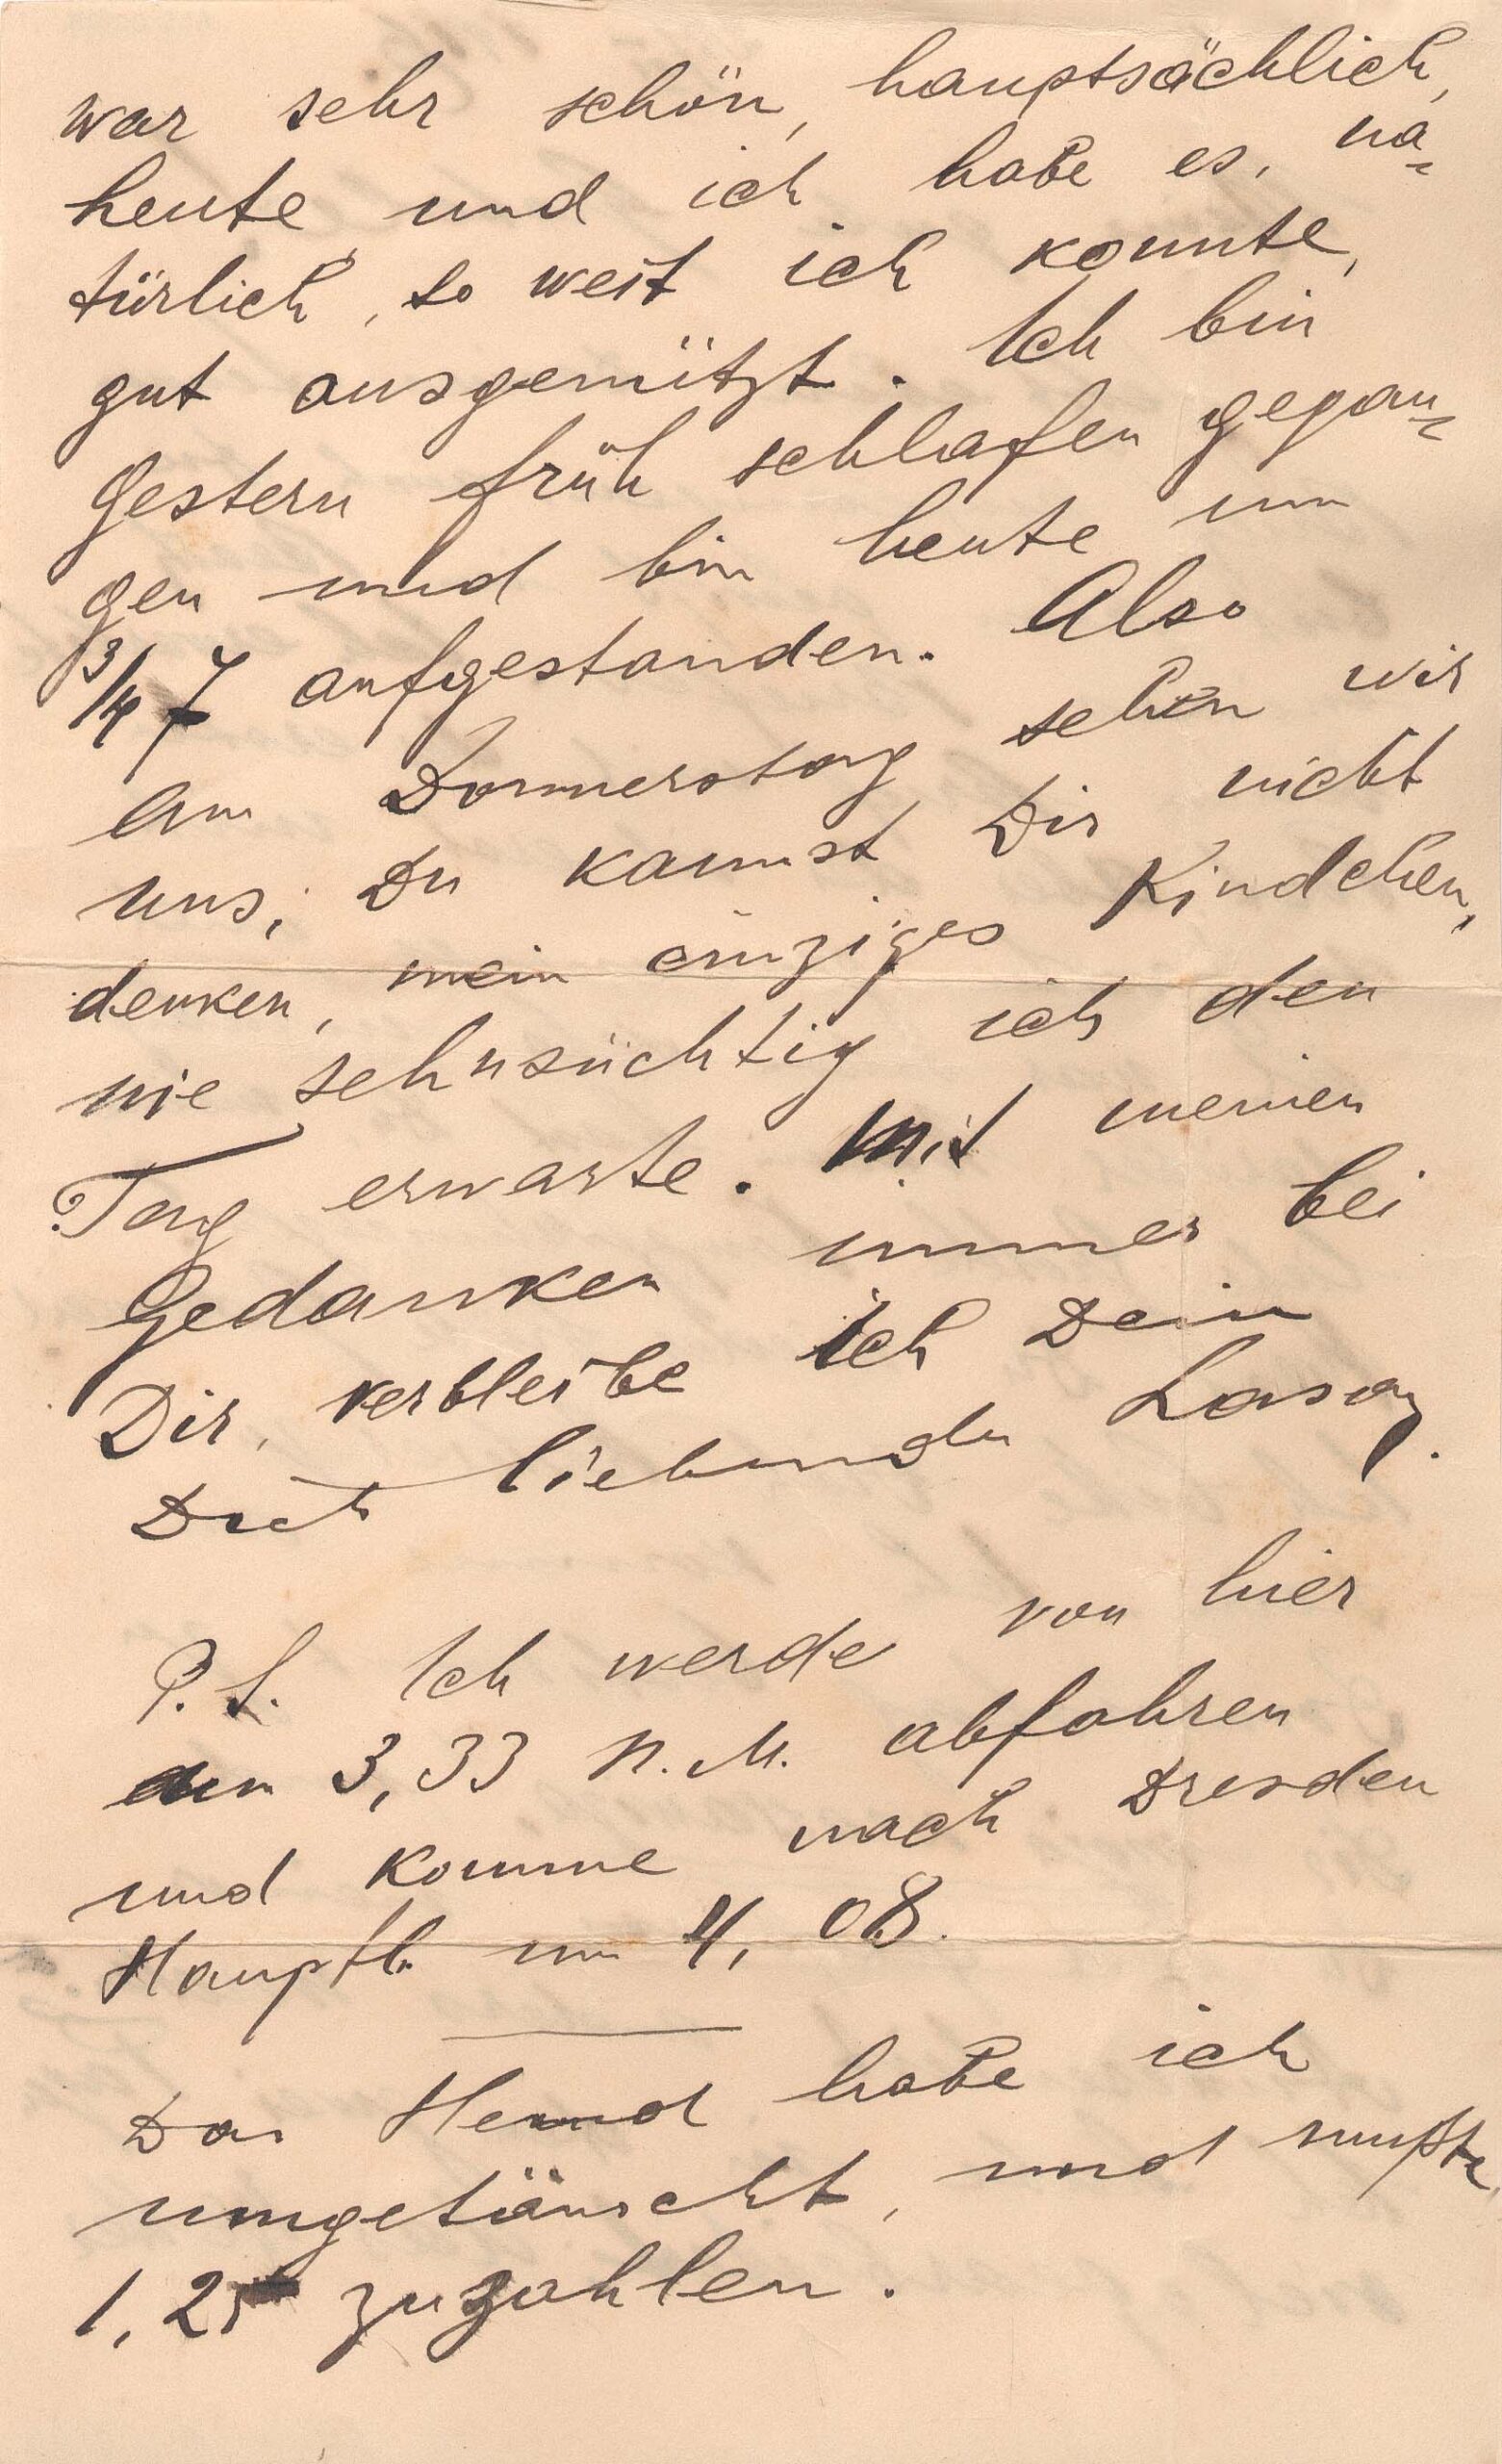 war sehr schön, hauptsächlich,
heute und ich habe es, na-
türlich, so weit ich konnte,
gut ausgenützt. Ich bin
gestern früh schlafen gegan-
gen und bin heute um
3/4 7 aufgestanden. Also
am Donnerstag sehen wir
uns; Du kannst Dir nicht
denken, mein einziges Kindchen,
wie sehnsüchtig ich den
Tag erwarte. Mit meinen
Gedanken immer bei
Dir, verbleibe ich Dein
Dich liebender
P.S. Ich werde von hier
um 3,33 N.M. abfahren
und komme nach Dresden
Hauptb. um 4, 08.
Das Hemd habe ich
umgetäuscht, und mußte
1,25 zuzahlen.